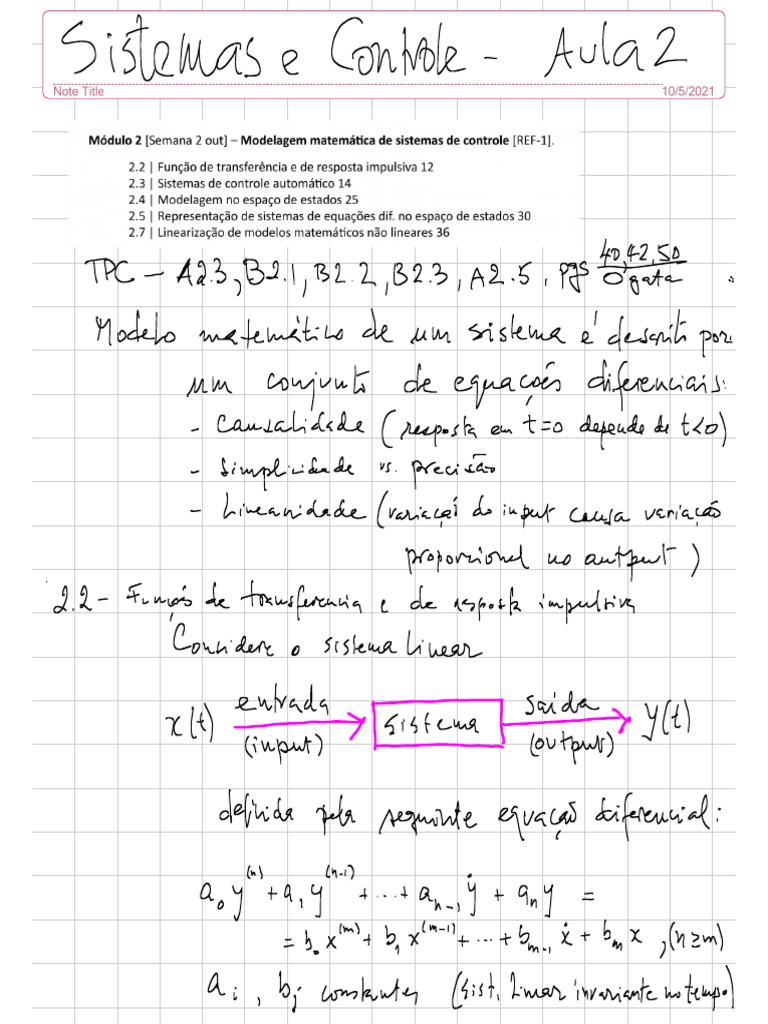 Sistemas e Controle - Aula 2
Note Title 10/5/2021
Módulo 2 [Semana 2 out] – Modelagem matemática de sistemas de controle [REF-1].
2.2 | Função de transferência e de resposta impulsiva 12
2.3 | Sistemas de controle automático 14
2.4 | Modelagem no espaço de estados 25
2.5 | Representação de sistemas de equações dif. no espaço de estados 30
2.7 | Linearização de modelos matemáticos não lineares 36
TPC - A2.3, B2.1, B2.2, B2.3, A2.5, pgs 40,42,50 Ogata
Modelo matemático de um sistema é descrito por
um conjunto de equações diferenciais:
- Causalidade (resposta em t=0 depende de t<0)
- Simplicidade vs. precisão
- Linearidade (variação do input causa variação
proporcional no output)
2.2 - Função de transferência e de resposta impulsiva
Considere o sistema linear
x(t) entrada (input) sistema saída (output) y(t)
definida pela seguinte equação diferencial:
a₀ y⁽ⁿ⁾ + a₁ y⁽ⁿ⁻¹⁾ + ... + aₙ₋₁ ẏ + aₙ y =
= b₀ x⁽ᵐ⁾ + b₁ x⁽ᵐ⁻¹⁾ + ... + bₘ₋₁ ẋ + bₘ x , (n ≥ m)
aᵢ , bⱼ constantes (sist. linear invariante no tempo)